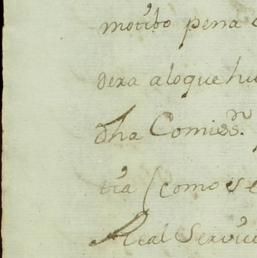 motibo pena
dera aloque hu
dha Comiss.ⁿ
tia (como se
Real Servici